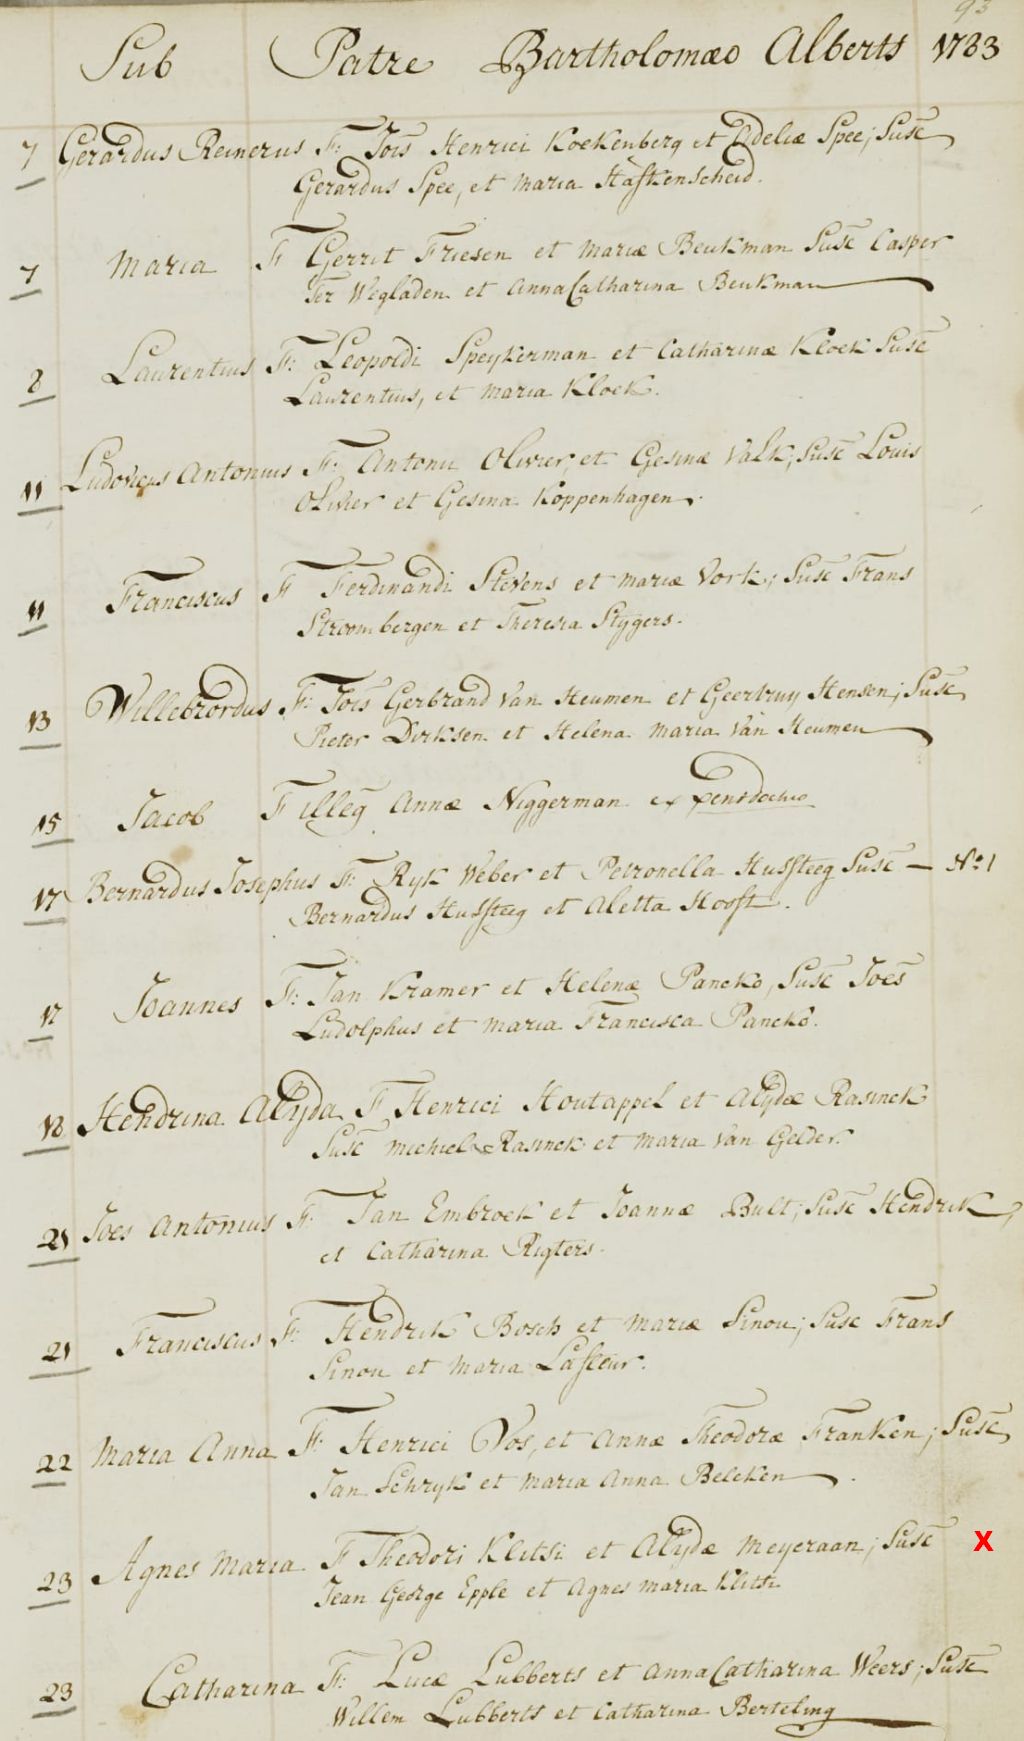 93
Sub Patre Bartholomæo Alberts 1783
7 Gerardus Reinerus F: Jois Henrici Koekenberg et Adeliæ Spee; Susc
Gerardus Spee, et Maria Hafkenscheid.
7 Maria F Gerrit Friesen et Mariæ Beukman Susc Casper
Ter Wegladen et Anna Catharina Beukman
8 Laurentius F: Leopoldi Speykerman et Catharinæ Kloek Susc
Laurentius, et Maria Kloek.
11 Ludovicus Antonius F: Antonii Olivier, et Gesinæ Valk; Susc Louis
Olivier et Gesina Koppenhagen.
11 Franciscus F Ferdinandi Stevens et Mariæ Vork; Susc Frans
Stroombergen et Theresia Stygers.
13 Willebrordus F: Jois Gerbrand Van Heumen et Geertruy Hensen; Susc
Pieter Dirksen et Helena Maria Van Heumen
15 Jacob F illeg Annæ Niggerman ex
17 Bernardus Josephus F: Ryk Weber et Petronella Hussteeg Susc — No 1
Bernardus Hussteeg et Aletta Hooft.
17 Joannes F: Jan Kramer et Helenæ Pancko, Susc Joes
Ludolphus et Maria Francisca Pancko.
18 Hendrina Alyda F Henrici Houtappel et Alydæ Rasinck
Susc Michiel Rasinck et Maria Van Gelder.
21 Joes Antonius F: Jan Embroek et Joannæ Bult; Susc Hendrik,
et Catharina Rigters.
21 Franciscus F: Hendrik Bosch et Mariæ Sinou; Susc Frans
Sinou et Maria Lafleur.
22 Maria Anna F: Henrici Vos, et Annæ Theodoræ Franken; Susc
Jan Schryk et Maria Anna Belcken.
23 Agnes Maria F Theodori Klitsi et Alydæ Meyeraan; Susc X
Jean George Epple et Agnes Maria Klitsi
23 Catharina F: Lucæ Lubberts et Anna Catharina Weers; Susc
Willem Lubberts et Catharina Berteling